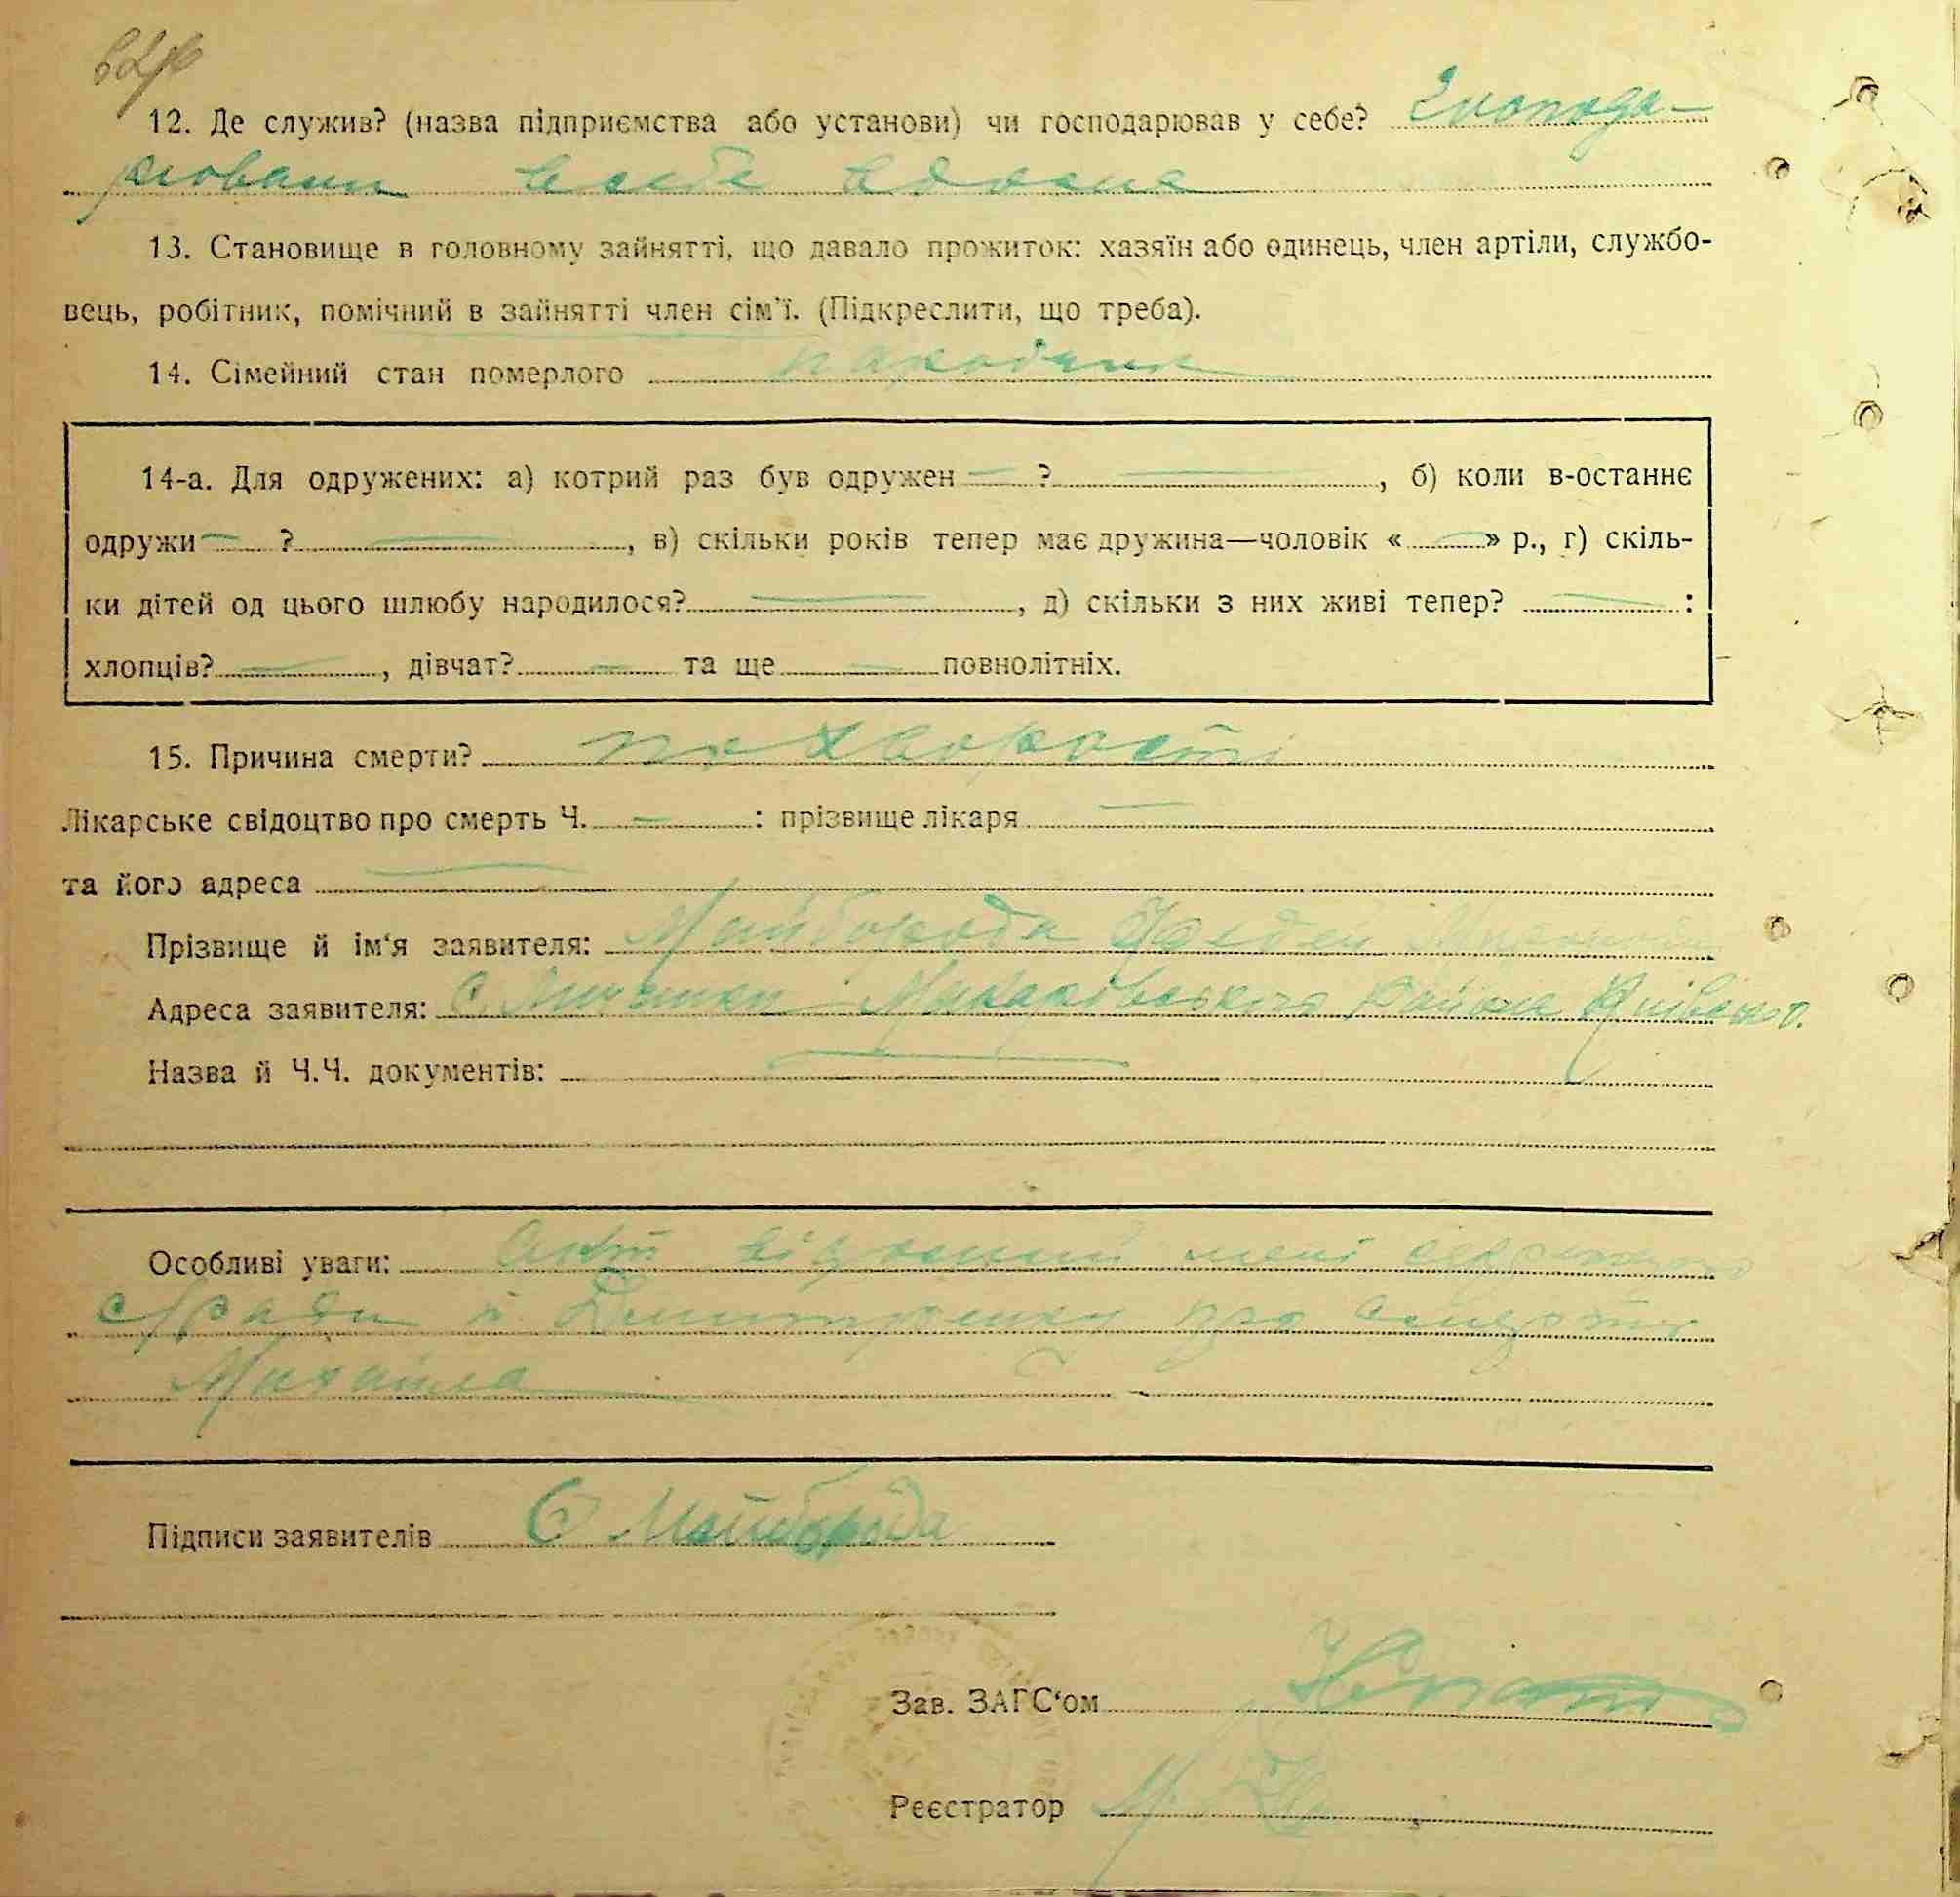 12. Де служив? (назва підприємства або установи) чи господарював у себе? Господа-
рювали в себе вдома
13. Становище в головному зайнятті, що давало прожиток: хазяїн або одинець, член артіли, службо-
вець, робітник, помічний в зайнятті член сім'ї. (Підкреслити, що треба).
14. Сімейний стан померлого
14-а. Для одружених: а) котрий раз був одружен — ? —, б) коли в-останнє
одружи — ? —, в) скільки років тепер має дружина—чоловік «—» р., г) скіль-
ки дітей од цього шлюбу народилося? —, д) скільки з них живі тепер? — :
хлопців? —, дівчат? — та ще — повнолітніх.
15. Причина смерти? по хворості
Лікарське свідоцтво про смерть Ч. — : прізвище лікаря —
та його адреса —
Прізвище й ім'я заявителя: Майборода
Адреса заявителя: с. Макарівського району Київсько
Назва й Ч.Ч. документів: —
Особливі уваги: Акт мені
с/ради про смерть
Михайла
Підписи заявителів Є Майборода
Зав. ЗАГС'ом
Реєстратор